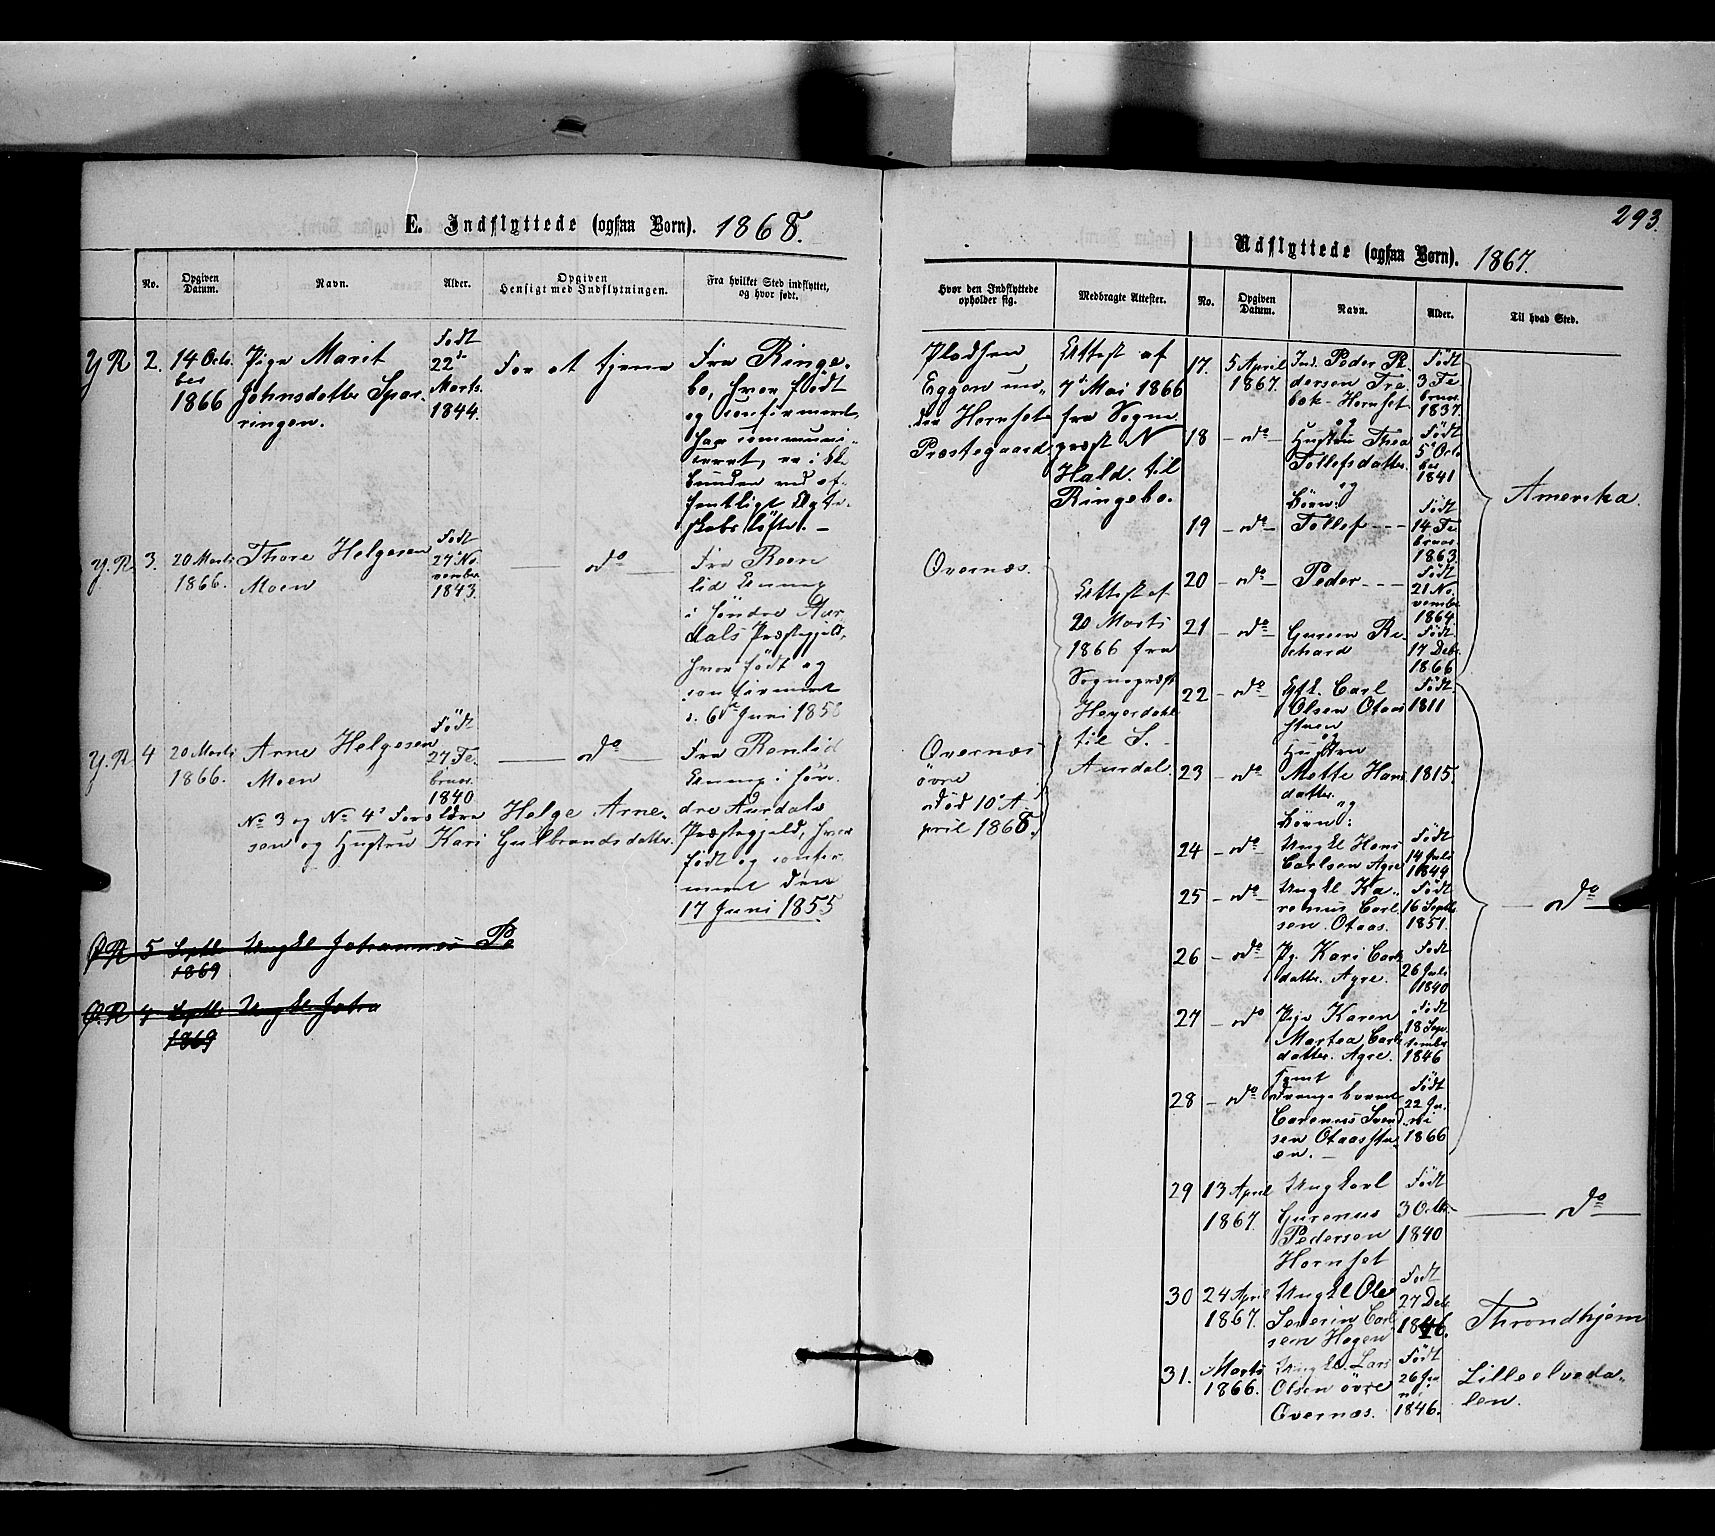 293.
E. Indflyttede (ogsaa Børn). 1868.
No.
Opgiven Datum.
Navn.
Alder.
Opgiven Hensigt med Indflytningen.
Fra hvilket Sted indflyttet, og hvor født.
Hvor den Indflyttede opholder sig.
Medbragte Attester.
Y R
2.
14 Octo
ber
1866
Pige Marit
Johnsdatter Spar-
ringen.
Født
22de
Marts
1844.
For at tjene
Fra Ringe-
bo, hvor født
og confirmeret,
har communi-
ceret, er i
ved of-
fentligt Ægte-
skabsløfte. -
Pladsen
Eggen un-
der Hornset
Præstegaard
Attest af
7de Mai 1866
fra Sogne
præst N
Hald. til
Ringebo.
Y. R
3.
20 Marts
1866.
Thore Helgesen
Moen
Født
27 No
vember
1843.
do
Fra Reen
lid Annex
i søndre Aur
dals Præstegjeld,
hvor født og
confirmeret
d. 6te Juni 1858
Overnæs.
Attest af
20 Marts
1866 fra
Sognepræst
Heyerdahl
til S.
Aurdal.
Y. R
4
20 Marts
1866.
Arne Helgesen
Moen
Født
27 Fe
bruar
1840
do
Fra Renlid
Annex i søn
dre Aurdals
Præstegjeld, hvor
født og confir
meret den
17 Juni 1855
Overnæs
øvre
død 10de A-
pril 1868.
No 3 og No 4s Forældre Helge Arne-
sen og Hustru Kari Gulbrandsdatter.
Ø R 5 Septbr Ungkl Johannes Pe
1869
Ø. R 4 Septbr Ungkl Joha
1869
Udflyttede (ogsaa Børn). 1867.
No.
Opgiven Datum.
Navn.
Alder.
Til hvad Sted.
17.
5 April
1867.
Ind. Peder P
dersen Tre
bak- Hornset
Født
3 Fe
bruar
1837.
Amerika.
18
- do -
og
Hustru Thea
Tollefsdatter.
Født
5 Octo
ber
1841
og
Børn:
19
- do -
Tollef - - -
Født
14 Fe
bruar
1863.
20
- do -
Peder - - -
Født
21 No
vember
1864.
21
- do -
Gureen Ri-
chard
Født
17 Debr
1866
22
- do -
Gfk. Carl
Olsen Otaas
stuen
Født
1811
do
og
Hustru
23
- do
Mette Hans
datter.
1815.
og
Børn:
24
- do
Ungkl Hans
Carlsen Agre
Født
14 Juli
1849
25
- do
Ungkl Ka-
renus Carl
sen Otaas.
Født
16 Septbr
1851.
26
- do
Pg. Kari Carls
datter. Agre.
Født
26 Juli
1840
27
- do
Pige Karen
Martea Carls
datter. Agre.
Født
18 Sep
tember
1846
28
- do
samt
Drengebarnet
Carenus Iver
sen Otaasstu
en. -
Født
22 Ju
ni
1866
29
13 April
1867.
Ungkarl
Gurenus
Pedersen
Hornset
Født
3 Octbr
1840
do
30
24 April
1867.
Ungkl Ole
Severin Carl
sen Hagen
Født
27 Debr
1846.
Throndhjem
31.
Marts
1866.
Ungkl. Lars
Olsen øvre
Overnæs.
Født
26 Ju
ni
1846.
Lilleelveda-
len.